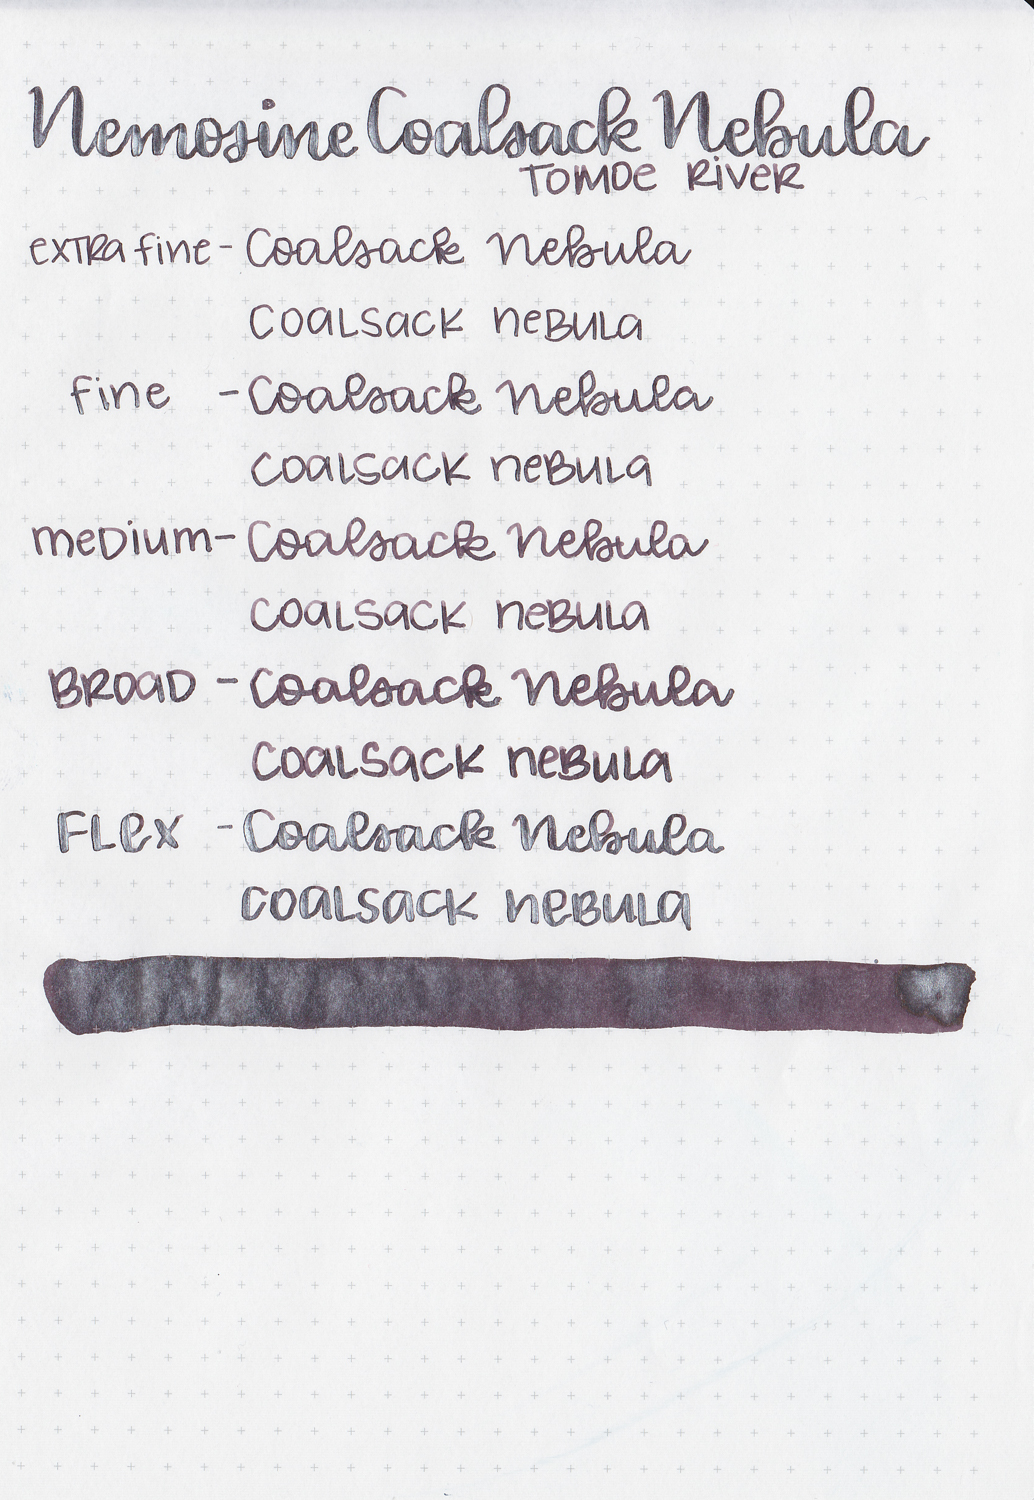 Nemosine Coalsack Nebula
TOMOE RiVER
exTRa fine - Coalsack Nebula
COALSACK NEBULA
fine - Coalsack Nebula
COALSACK NEBULA
meDium - Coalsack Nebula
COALSACK NEBULA
BROAD - Coalsack Nebula
COALSACK NEBULA
FLex - Coalsack Nebula
COALSACK NEBULA